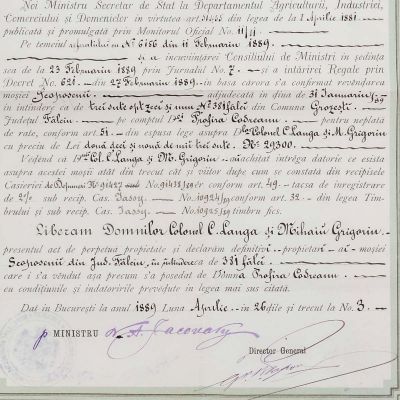 Noi Ministru Secretar de Stat la Departamentul Agriculturii, Industriei,
Comerciului și Domenielor în virtutea art. din legea de la 1 Aprilie 1881
publicată și promulgată prin Monitorul Oficial No 11/81
Pe temeiul No 6156 din 11 Februarie 1889.
și a încuviințării Consiliului de Ministri în ședința
sea de la 23 Februarie 1889 prin Jurnalul No. 7. și a întărirei Regale prin
Decret No. 621. din 27 Februarie 1889. în baza cărora s'a confirmat revânzarea
moșiei Scoposenii adjudecată în ziua de 31 Ianuariu/89
în întindere ca de trei sute opt zeci și unu No 381 fălci din Comuna Grozesci
Județul Fălciu, pe comptul D-nei Trofira Codreanu pentru neplata
de rate, conform art. 51. din espusa lege asupra D-lor Colonel C. Langa și M. Grigoriu
cu preciu de Lei două zeci și nouă de mii trei sute. No 29300.
Vedend că D-nii Col. C. Langa și M. Grigoriu au achitat întrega datorie ce esista
asupra acestei moșii atât din trecut cât și viitor dupe cum se constată din recipisele
Casieriei No 91427 No 91431/89 er conform art. 49. tacsa de inregistrare
de 2% sub recip. Cas. Iassy. No 10924/89 conform art. 32. din legea Tim-
brului și sub recip. Cas. Iassy. No 10925/89 timbru fics.
Liberam Domnilor Colonel C. Langa și Mihaiŭ Grigoriu,
presentul act de perpetua proprietate și declarăm definitivi proprietari ai moșiei
Scoposenii din Jud. Fălciu, în întindere ca de 381 fălci
care i s'a vândut așa precum s'a posedat de Domna Trofira Codreanu.
cu condițiunile și indatoririle prevedute in legea mai sus citată.
Dat în București la anul 1889 Luna Aprilie în 26 zile și trecut la No. 3.
p MINISTRU
Director General